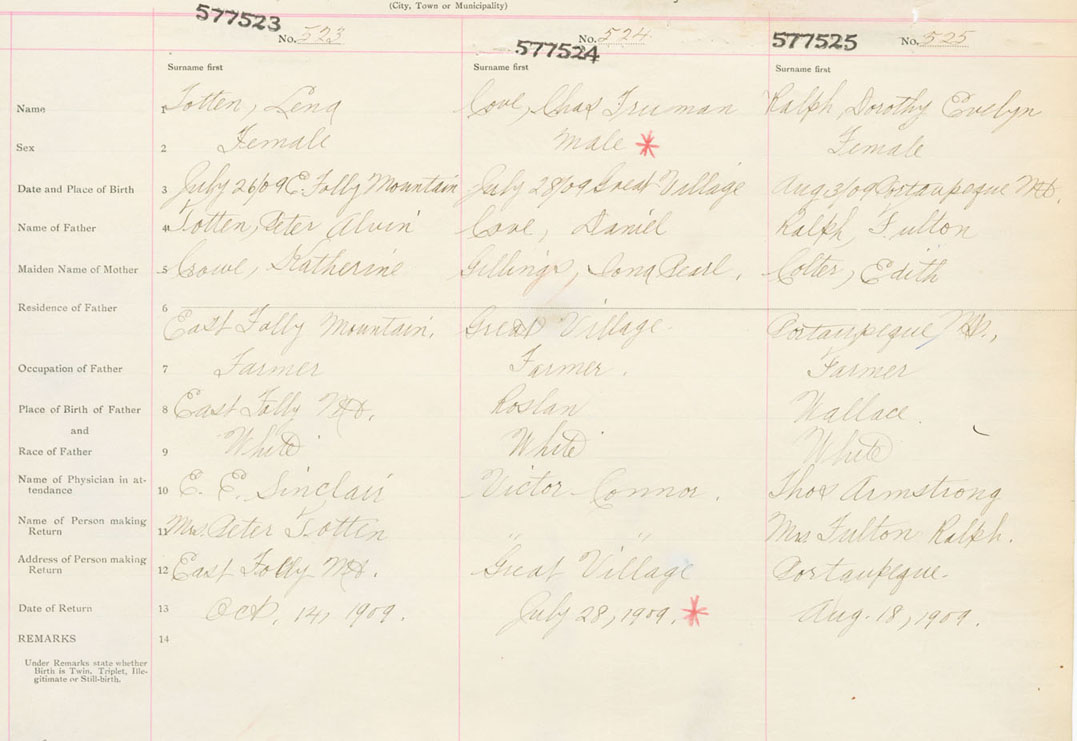 (City, Town or Municipality)
577523 No. 523
577524 No. 524
577525 No. 525
Surname first Surname first Surname first
Name 1 Totten, Lena Cove, Chas Truman Ralph, Dorothy Evelyn
Sex 2 Female Male * Female
Date and Place of Birth 3 July 26/09 E. Folly Mountain July 28/09 Great Village Aug 3/09 Portaupeque Mt.
Name of Father 4 Totten, Peter Alvin Cove, Daniel Ralph, Fulton
Maiden Name of Mother 5 Crowe, Katherine Gillings, Iona Pearl. Colter, Edith
Residence of Father 6
East Folly Mountain. Great Village. Portaupeque Mt.,
Occupation of Father 7 Farmer Farmer. Farmer
Place of Birth of Father 8 East Folly Mt. Roslan Wallace.
and
Race of Father 9 White White White
Name of Physician in at-
tendance 10 E. E. Sinclair Victor Connor. Thos Armstrong
Name of Person making
Return 11 Mrs. Peter Totten " " Mrs Fulton Ralph.
Address of Person making
Return 12 East Folly Mt. Great Village Portaupeque.
Date of Return 13 Oct. 14, 1909. July 28, 1909. * Aug. 18, 1909.
REMARKS 14
Under Remarks state whether
Birth is Twin, Triplet, Ille-
gitimate or Still-birth.